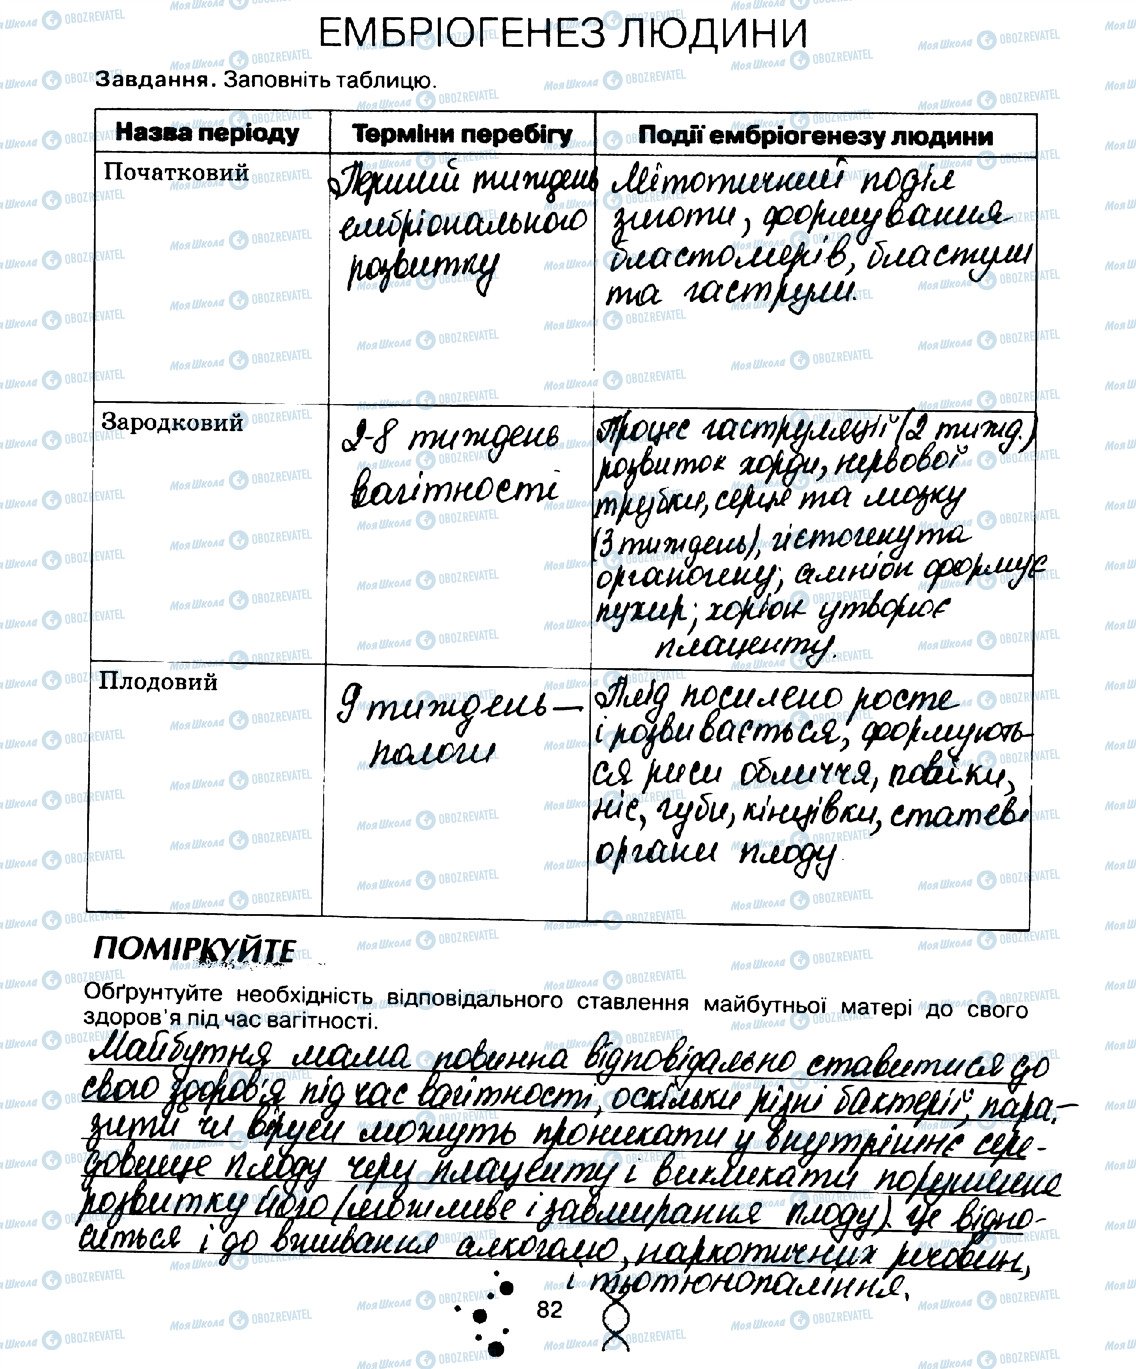 ЕМБРІОГЕНЕЗ ЛЮДИНИ
Завдання. Заповніть таблицю.
Назва періоду
Терміни перебігу
Події ембріогенезу людини
Початковий
Перший тиждень
ембріонального
розвитку
Мітотичний поділ
зиготи, формування
бластомерів, бластули
та гаструли.
Зародковий
2-8 тиждень
вагітності
Процес гаструляції (2 тижд.)
розвиток хорди, нервової
трубки, серця та мозку
(3 тиждень), гістогенз та
органогенз; амніон формує
пухир; хоріон утворює
плаценту.
Плодовий
9 тиждень —
пологи
Плід посилено росте
і розвивається, формують-
ся риси обличчя, повіки,
ніс, губи, кінцівки, статеві
органи плоду
ПОМІРКУЙТЕ
Обґрунтуйте необхідність відповідального ставлення майбутньої матері до свого
здоров'я під час вагітності.
Майбутня мама повинна відповідально ставитися до
свого здоров'я під час вагітності, оскільки різні бактерії, пара-
зити чи віруси можуть проникати у внутрішнє сере-
довище плоду через плаценту і викликати порушення
розвитку його (можливе і завмирання плоду). Це відно-
ситься і до вживання алкоголю, наркотичних речовин,
і тютюнопаління.
82
МояШкола OBOZREVATEL